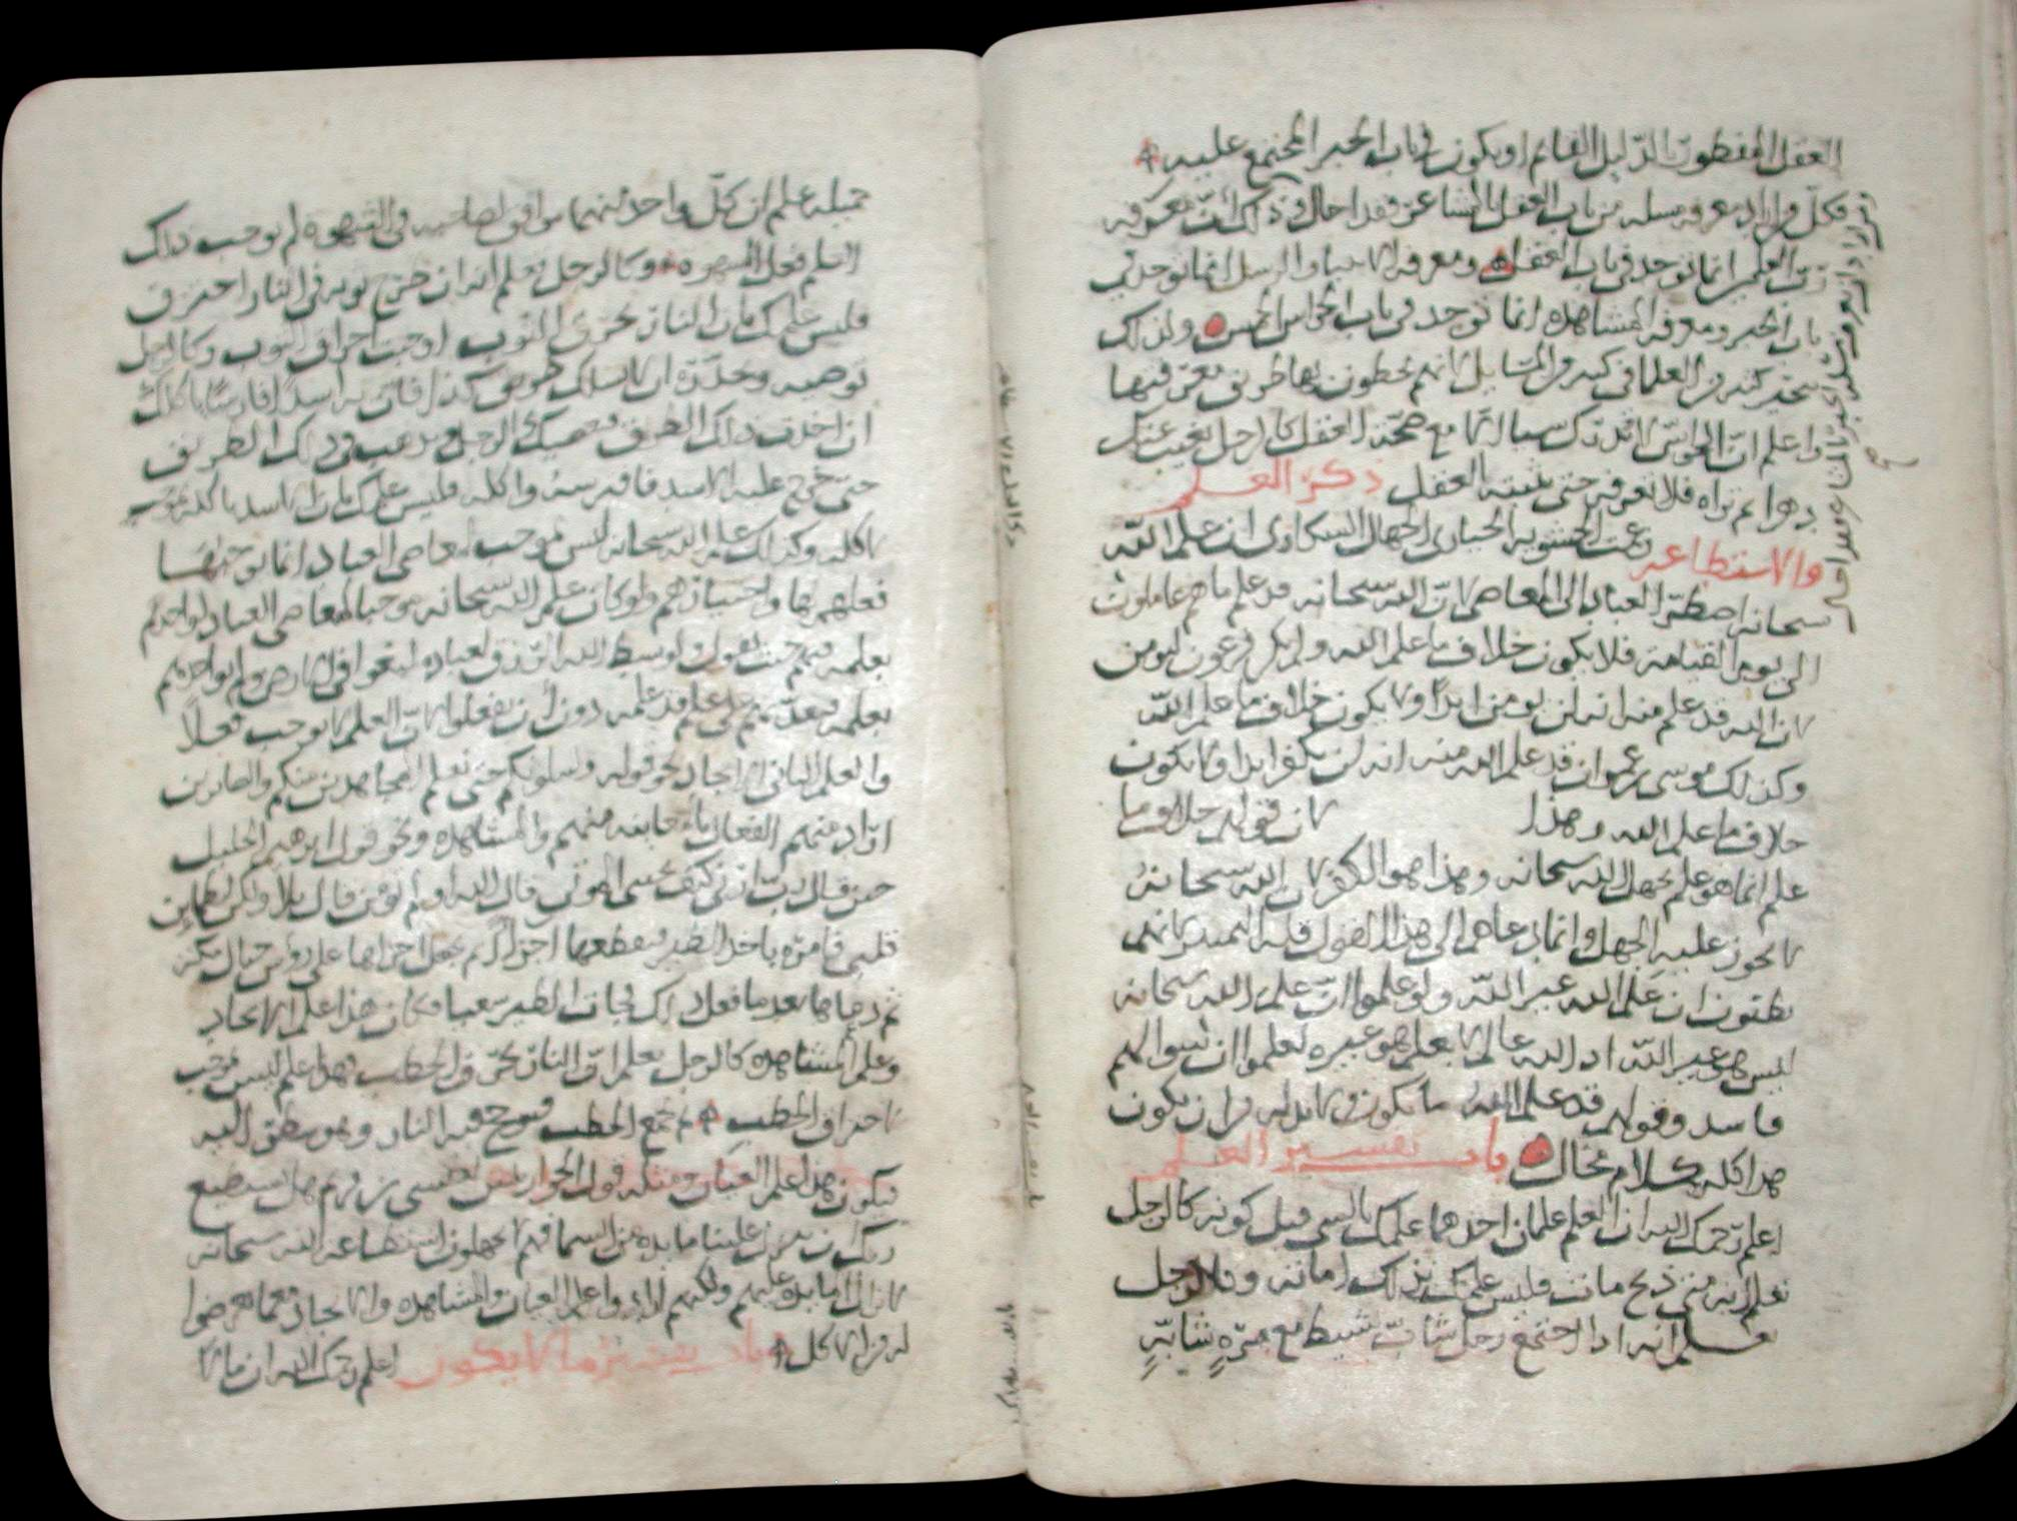 العقل المفطور الدليل القائم او يكون في باب الخبر المجتمع عليه
فكل من اراد معرفة مسلة من باب العقل بالمشاعر فقد احال في ذلك لان معرفة
رب العلمين انما توجد في باب العقل ومعرفة الانبيا والرسل انما توجد في
باب الخبر ومعرفة المشاهده انما توجد في باب الحواس الخمس ولذلك
تحير كثير من العلما في كثير من المسايل لانهم يخطون بها طريق معرفتها
واعلم ان الحواس لا تدرك شيا الا مع صحة العقل كالرجل يغيب عنك
دهرا ثم تراه فلا تعرفه حتى يثبته العقل ذكر العلم
والاستطاعه زعمت الحشويه الحيارى الجهال السكارى ان علم الله
سبحانه اضطر العباد الى المعاصي لان الله سبحانه قد علم ما هم عاملون
الى يوم القيامة فلا يكون خلاف ما علم الله ولم يكن فرعون ليومن
لان الله قد علم منه انه لن يومن ابدا ولا يكون خلاف ما علم الله
وكذلك موسى بن عمران قد علم الله منه انه لن يكفر ابدا ولا يكون
خلاف ما علم الله وهذا لان قولهم خلاف ما
علم انما هو علم بجهل الله سبحانه وهذا هو الكفر لان الله سبحانه
لا يجوز عليه الجهل وانما دعاهم الى هذا القول قلة التمييز لانهم
يظنون ان علم الله غير الله ولو علموا ان علم الله سبحانه
ليس هو غير الله اذ الله عالم لا بعلم هو غيره لعلموا ان سوالهم
فاسد وقولهم قد علم الله ما يكون ولا بد من ان يكون
هذا كله كلام محال باب تفسير العلم
اعلم رحمك الله ان العلم علمان احدهما علمك بالشي قبل كونه كالرجل
تعلم انه متى ذبح مات فليس علمك بذلك اماته وكالرجل
علم انه اذا اجتمع رجل شاب شبيط مع مره شابة
جميله علم ان كل واحد منهما موافق لصاحبه في الشهوه لم يوجب ذلك
العلم فعل الشهوه وكالرجل تعلم انه ان طرح ثوبه في النار احترق
فليس علمك بان النار تحرق الثوب اوجبت احراق الثوب وكالرجل
توصيه وتحذره ان لا يسلك طريق كذا فان به اسدا فارسا ياكلك
ان اخذت ذلك الطريق فعصيك الرجل ورغب في ذلك الطريق
حتى خرج عليه الاسد فافترسه واكله فليس علمك بان الاسد ياكله موجب
لاكله وكذلك علم الله سبحانه ليس موجب لمعاصي العباد انما يوجبها
فعلهم بها واختيارهم ولو كان علم الله سبحانه موجبا لمعاصي العباد لواخذهم
بعلمه فيهم حيث يقول ولو بسط الله الرزق لعباده لبغوا في الارض ولم يواخذهم
بعلمه فيعذبهم على علم قد علمه دون ان يفعلوا لان العلم لا يوجب فعلا
والعلم الثاني الايجاد نحو قوله ولنبلونكم حتى نعلم المجاهدين منكم والصابرين
اراد منهم الفعال بالمعاينه منهم والمشاهده ونحو قول ابرهيم الخليل
حين قال رب ارني كيف تحيي الموتى قال الله اولم تومن قال بلا ولكن ليطماين
قلبي فامره ياخذ الطير فيقطعها اجزا ثم يجعل اجزاها على روس جبال مكه
ثم دعاها بعد ما فعل ذلك فجات الطير سعيا فكان هذا علم الايجاد
وعلم المشاهده كالرجل يعلم ان النار تحرق الحطب فهذا علم ليس موجب
لاحراق الحطب ثم يجمع الحطب فيوجج فيه النار وهو ينظر اليه
فيكون هذا علم العيان ومثله قول الحواريين لعيسى بن مريم هل يستطيع
ربك ان ينزل علينا مايده من السما فهم لا يجهلون استطاعة الله سبحانه
لانزال المايده عليهم ولكنهم ارادوا علم العيان والمشاهده والايجاد فيما عرضوا
له من الاكل باب يفسر ما لا يكون اعلم رحمك الله ان ما لا